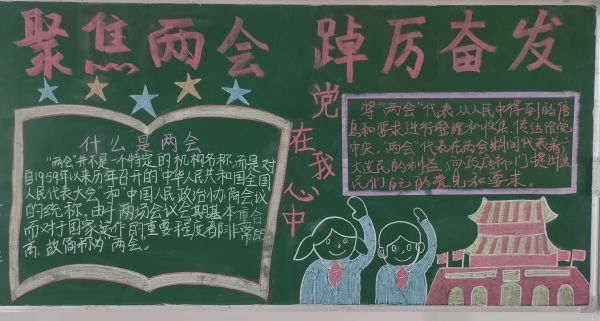 聚焦两会 踔厉奋发
什么是两会
"两会"并不是一个特定的机构名称,而是对
自1959年以来历年召开的"中华人民共和国全国
人民代表大会"和"中国人民政治协商会议"
的统称。由于两场会议会期基本重合
而对于国家运作的重要程度都非常的
高,故简称为"两会。
党在我心中
将"两会"代表从人民中得到的信
息和要求进行整理和收集,传达给党
中央。"两会"代表在两会期间代表着广
大选民的利益,向政府部门提出选
民们自己的意见和要求。